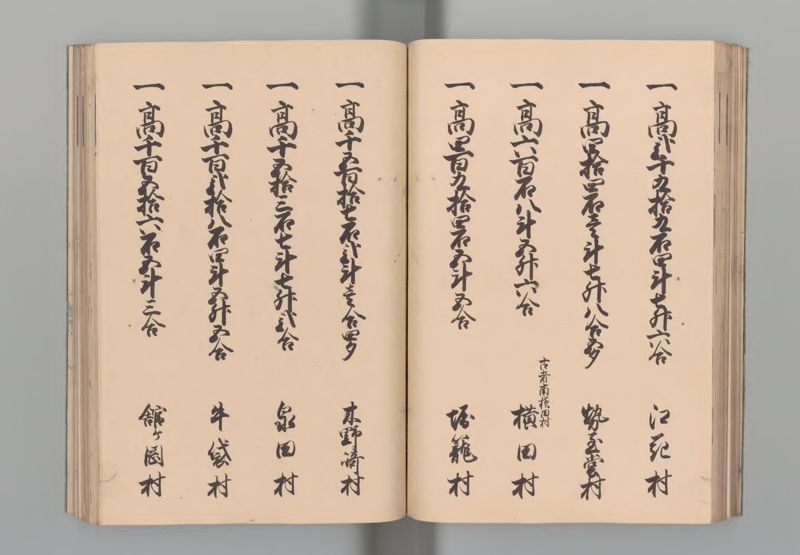 一 高弐千五拾九石四斗七升六合 江花村
一 高四拾四石壱斗七升八合五夕 勢至堂村
一 高六百石八斗五升六合 古者南横田村 横田村
一 高四百九拾四石五斗五合 堀籠村
一 高千五百拾七石弐斗壱合四夕 木野崎村
一 高千五拾三石七斗七升弐合 泉田村
一 高千百弐拾八石四斗五升五合 牛袋村
一 高千百五拾六石五斗三合 館ヶ岡村